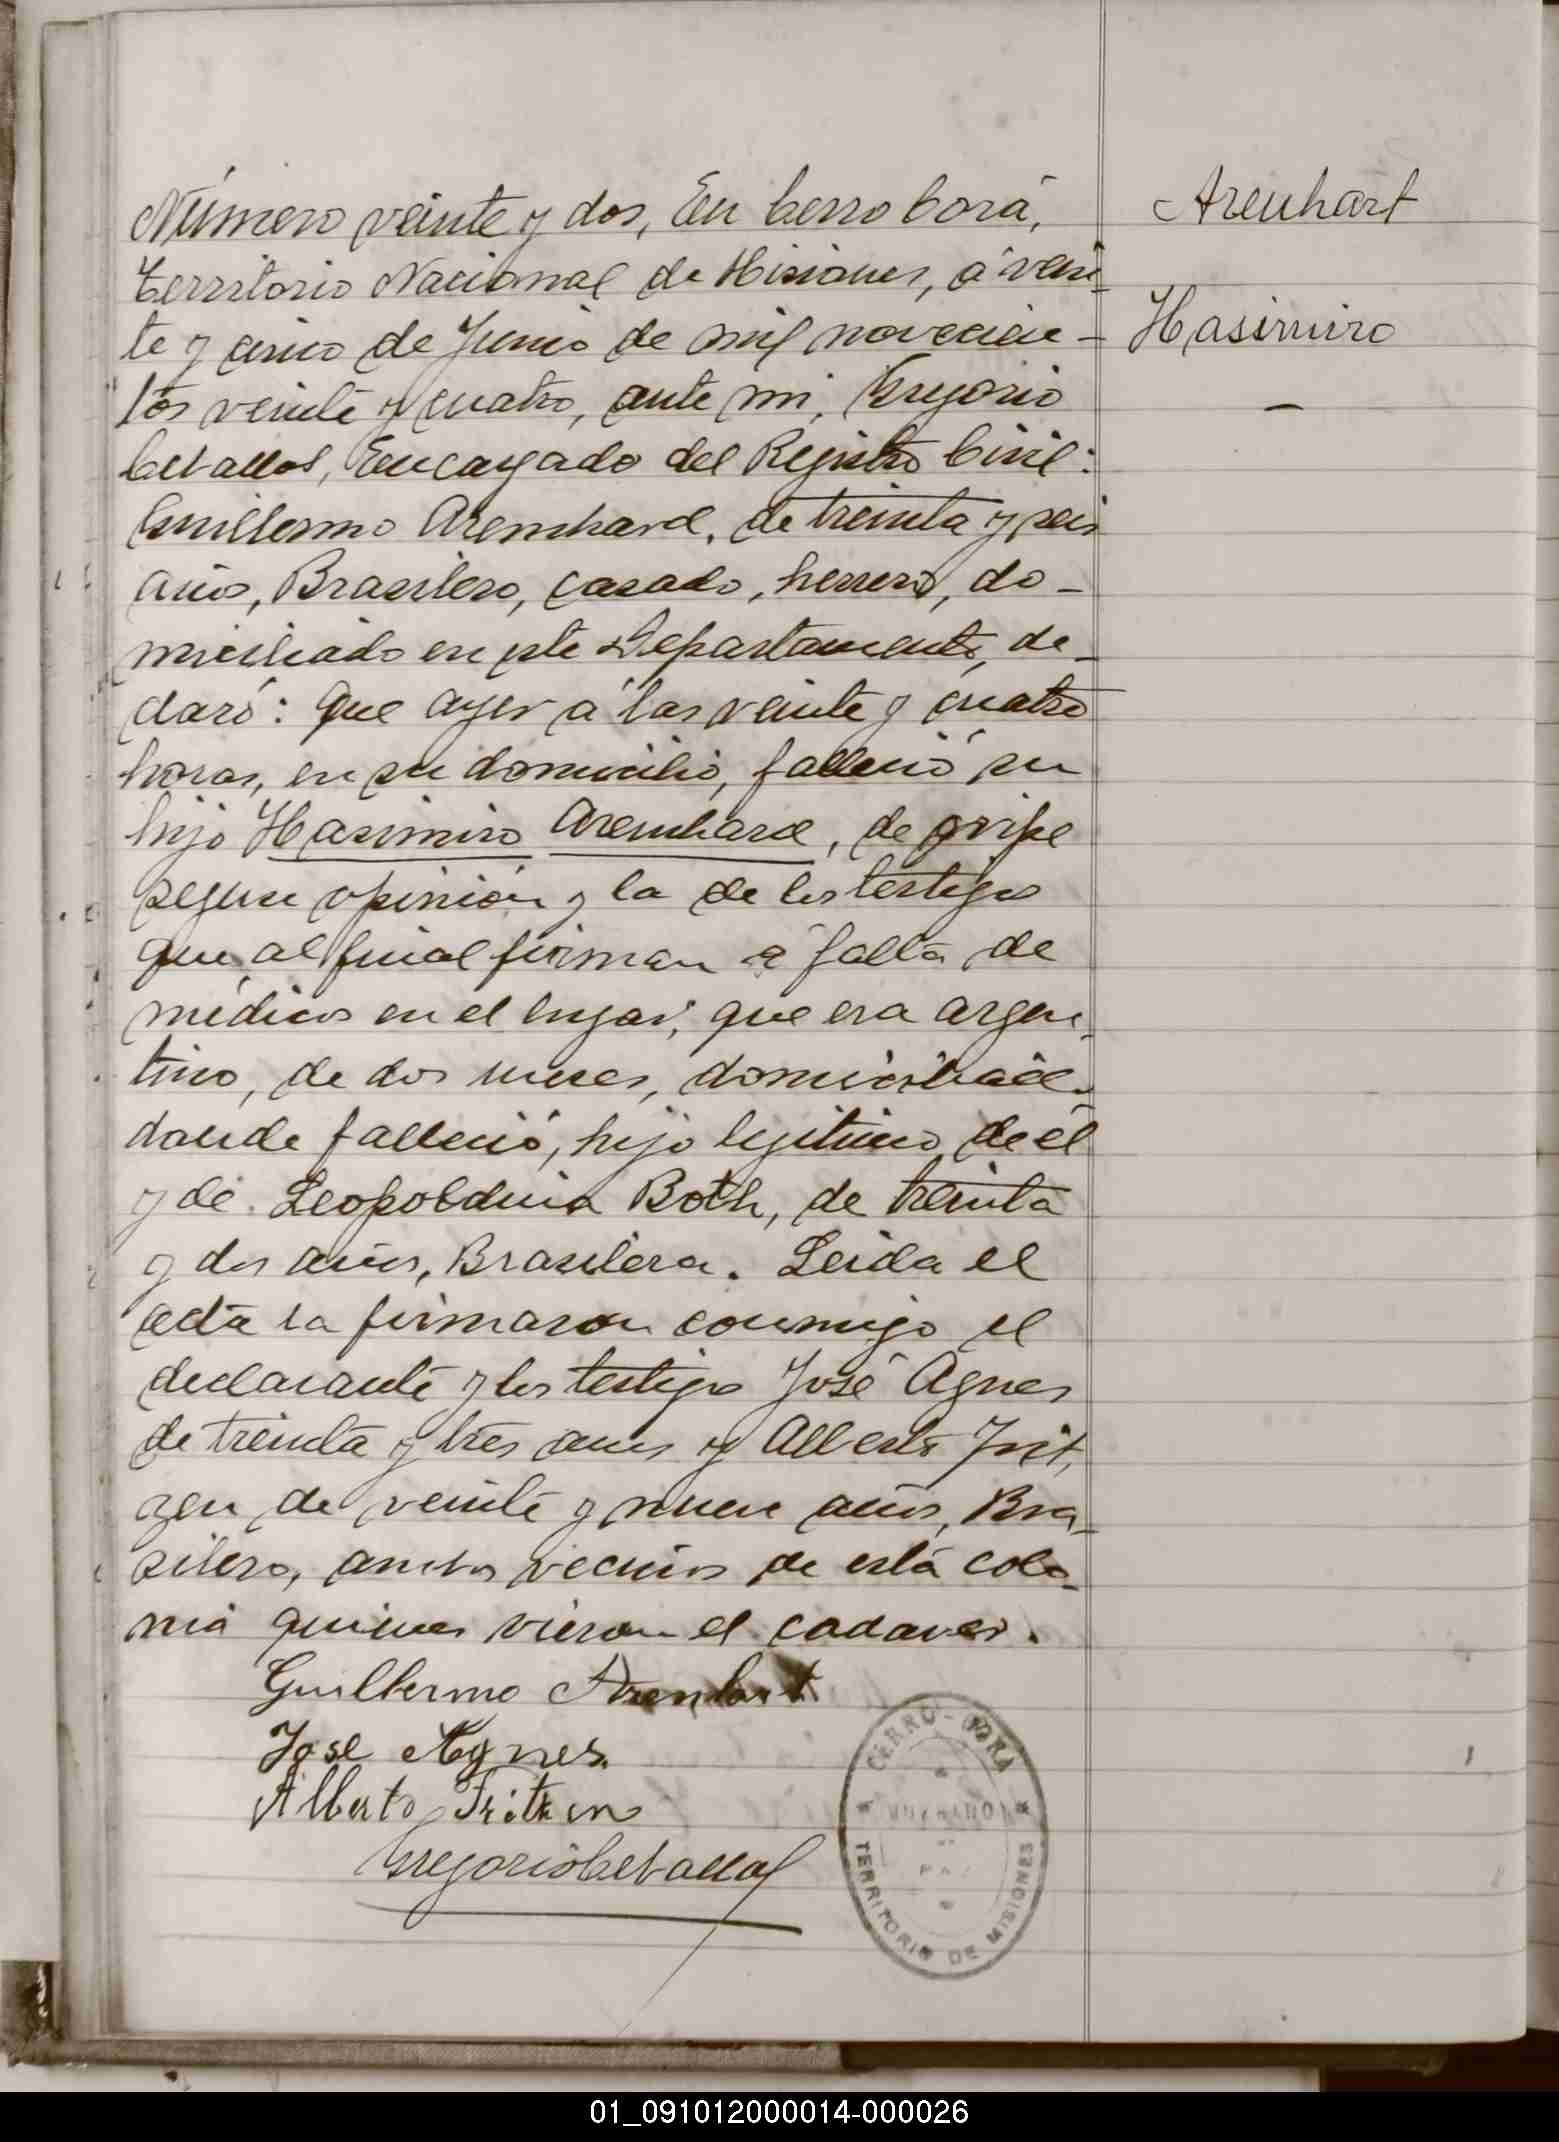 Número veinte y dos, En Cerro Corá,
Territorio Nacional de Misiones, á vein-
te y cinco de Junio de mil novecien-
tos veinte y cuatro, ante mi, Gregorio
Ceballos, Encargado del Registro Civil:
Guillermo Arenhard, de treinta y seis
años, Brasilero, casado, herrero, do-
miciliado en este Departamento, de-
claró: que ayer á las veinte y cuatro
horas, en su domicilio, falleció su
hijo Hasimiro Arenhard, de gripe
segun opinión y la de los testigos
que al final firman á falta de
médicos en el lugar, que era argen-
tino, de dos meses,
donde falleció, hijo legitimo de él
y de Leopoldina Both, de treinta
y dos años, Brasilera. Leida el
acta la firmaron conmigo el
declarante y los testigos José Agnes
de treinta y tres años y Alberto Frit,
zen de veinte y nueve años, Bra-
silero, ambos vecinos de esta colo-
nia quienes vieron el cadaver.
Guillermo Arenhart
Jose Agnes.
Alberto Fritzen
Gregorio Ceballos
Arenhart
Hasimiro
CERRO-CORA
PAZ
TERRITORIO DE MISIONES
01_091012000014-000026